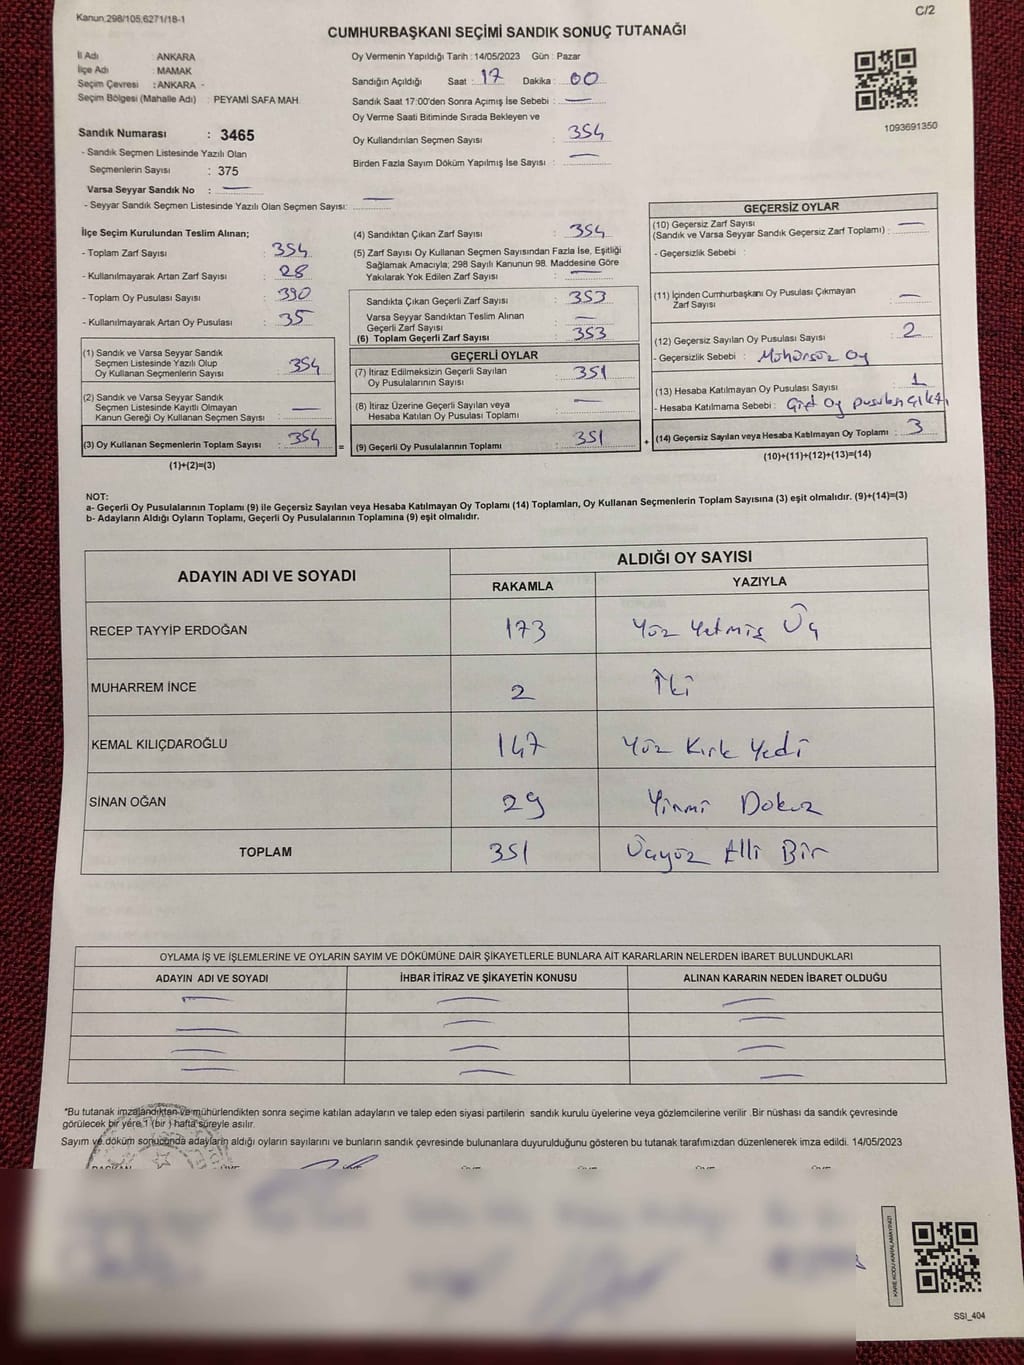 Kanun:298/105,6271/18-1
C/2
CUMHURBAŞKANI SEÇİMİ SANDIK SONUÇ TUTANAĞI
İl Adı : ANKARA
İlçe Adı : MAMAK
Seçim Çevresi : ANKARA -
Seçim Bölgesi (Mahalle Adı) : PEYAMİ SAFA MAH.
Sandık Numarası : 3465
- Sandık Seçmen Listesinde Yazılı Olan
Seçmenlerin Sayısı : 375
Varsa Seyyar Sandık No : —
- Seyyar Sandık Seçmen Listesinde Yazılı Olan Seçmen Sayısı: —
Oy Vermenin Yapıldığı Tarih : 14/05/2023 Gün : Pazar
Sandığın Açıldığı Saat : 17 Dakika : 00
Sandık Saat 17:00'den Sonra Açımış İse Sebebi : —
Oy Verme Saati Bitiminde Sırada Bekleyen ve
Oy Kullandırılan Seçmen Sayısı : 354
Birden Fazla Sayım Döküm Yapılmış İse Sayısı : —
1093691350
İlçe Seçim Kurulundan Teslim Alınan;
- Toplam Zarf Sayısı : 354
- Kullanılmayarak Artan Zarf Sayısı : 28
- Toplam Oy Pusulası Sayısı : 390
- Kullanılmayarak Artan Oy Pusulası : 35
(1) Sandık ve Varsa Seyyar Sandık
Seçmen Listesinde Yazılı Olup
Oy Kullanan Seçmenlerin Sayısı : 354
(2) Sandık ve Varsa Seyyar Sandık
Seçmen Listesinde Kayıtlı Olmayan
Kanun Gereği Oy Kullanan Seçmen Sayısı : —
(3) Oy Kullanan Seçmenlerin Toplam Sayısı : 354 =
(1)+(2)=(3)
(4) Sandıktan Çıkan Zarf Sayısı : 354
(5) Zarf Sayısı Oy Kullanan Seçmen Sayısından Fazla İse, Eşitliği
Sağlamak Amacıyla; 298 Sayılı Kanunun 98. Maddesine Göre
Yakılarak Yok Edilen Zarf Sayısı : —
Sandıkta Çıkan Geçerli Zarf Sayısı : 353
Varsa Seyyar Sandıktan Teslim Alınan
Geçerli Zarf Sayısı : —
(6) Toplam Geçerli Zarf Sayısı : 353
GEÇERLİ OYLAR
(7) İtiraz Edilmeksizin Geçerli Sayılan
Oy Pusulalarının Sayısı : 351
(8) İtiraz Üzerine Geçerli Sayılan veya
Hesaba Katılan Oy Pusulası Toplamı : —
(9) Geçerli Oy Pusulalarının Toplamı : 351 +
GEÇERSİZ OYLAR
(10) Geçersiz Zarf Sayısı
(Sandık ve Varsa Seyyar Sandık Geçersiz Zarf Toplamı) : —
- Geçersizlik Sebebi :
(11) İçinden Cumhurbaşkanı Oy Pusulası Çıkmayan
Zarf Sayısı : —
(12) Geçersiz Sayılan Oy Pusulası Sayısı : 2
- Geçersizlik Sebebi : Mühürsüz Oy
(13) Hesaba Katılmayan Oy Pusulası Sayısı : 1
- Hesaba Katılmama Sebebi : Çift Oy pusulası çıktı
(14) Geçersiz Sayılan veya Hesaba Katılmayan Oy Toplamı : 3
(10)+(11)+(12)+(13)=(14)
NOT:
a- Geçerli Oy Pusulalarının Toplamı (9) ile Geçersiz Sayılan veya Hesaba Katılmayan Oy Toplamı (14) Toplamları, Oy Kullanan Seçmenlerin Toplam Sayısına (3) eşit olmalıdır. (9)+(14)=(3)
b- Adayların Aldığı Oyların Toplamı, Geçerli Oy Pusulalarının Toplamına (9) eşit olmalıdır.
ADAYIN ADI VE SOYADI
ALDIĞI OY SAYISI
RAKAMLA YAZIYLA
RECEP TAYYİP ERDOĞAN 173 Yüz Yetmiş Üç
MUHARREM İNCE 2 İki
KEMAL KILIÇDAROĞLU 147 Yüz Kırk Yedi
SİNAN OĞAN 29 Yirmi Dokuz
TOPLAM 351 Üçyüz Elli Bir
OYLAMA İŞ VE İŞLEMLERİNE VE OYLARIN SAYIM VE DÖKÜMÜNE DAİR ŞİKAYETLERLE BUNLARA AİT KARARLARIN NELERDEN İBARET BULUNDUKLARI
ADAYIN ADI VE SOYADI İHBAR İTİRAZ VE ŞİKAYETİN KONUSU ALINAN KARARIN NEDEN İBARET OLDUĞU
— — —
— — —
— — —
— — —
*Bu tutanak imzalandıktan ve mühürlendikten sonra seçime katılan adayların ve talep eden siyasi partilerin sandık kurulu üyelerine veya gözlemcilerine verilir .Bir nüshası da sandık çevresinde
görülecek bir yere 1 (bir ) hafta süreyle asılır.
Sayım ve döküm sonucunda adayların aldığı oyların sayılarını ve bunların sandık çevresinde bulunanlara duyurulduğunu gösteren bu tutanak tarafımızdan düzenlenerek imza edildi. 14/05/2023
KARE KODU KARALAMAYINIZ!
SSI_404